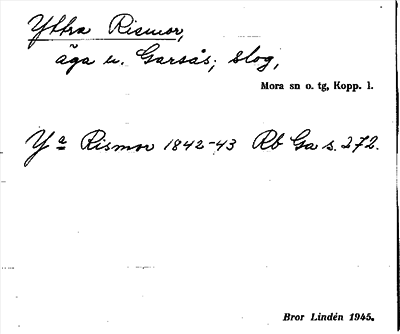 Yttra Rismor,
äga u. Garsås; slog,
Mora sn o. tg, Kopp. l.
Ya Rismor 1842-43 Rb Ga s. 272.
Bror Lindén 1945.